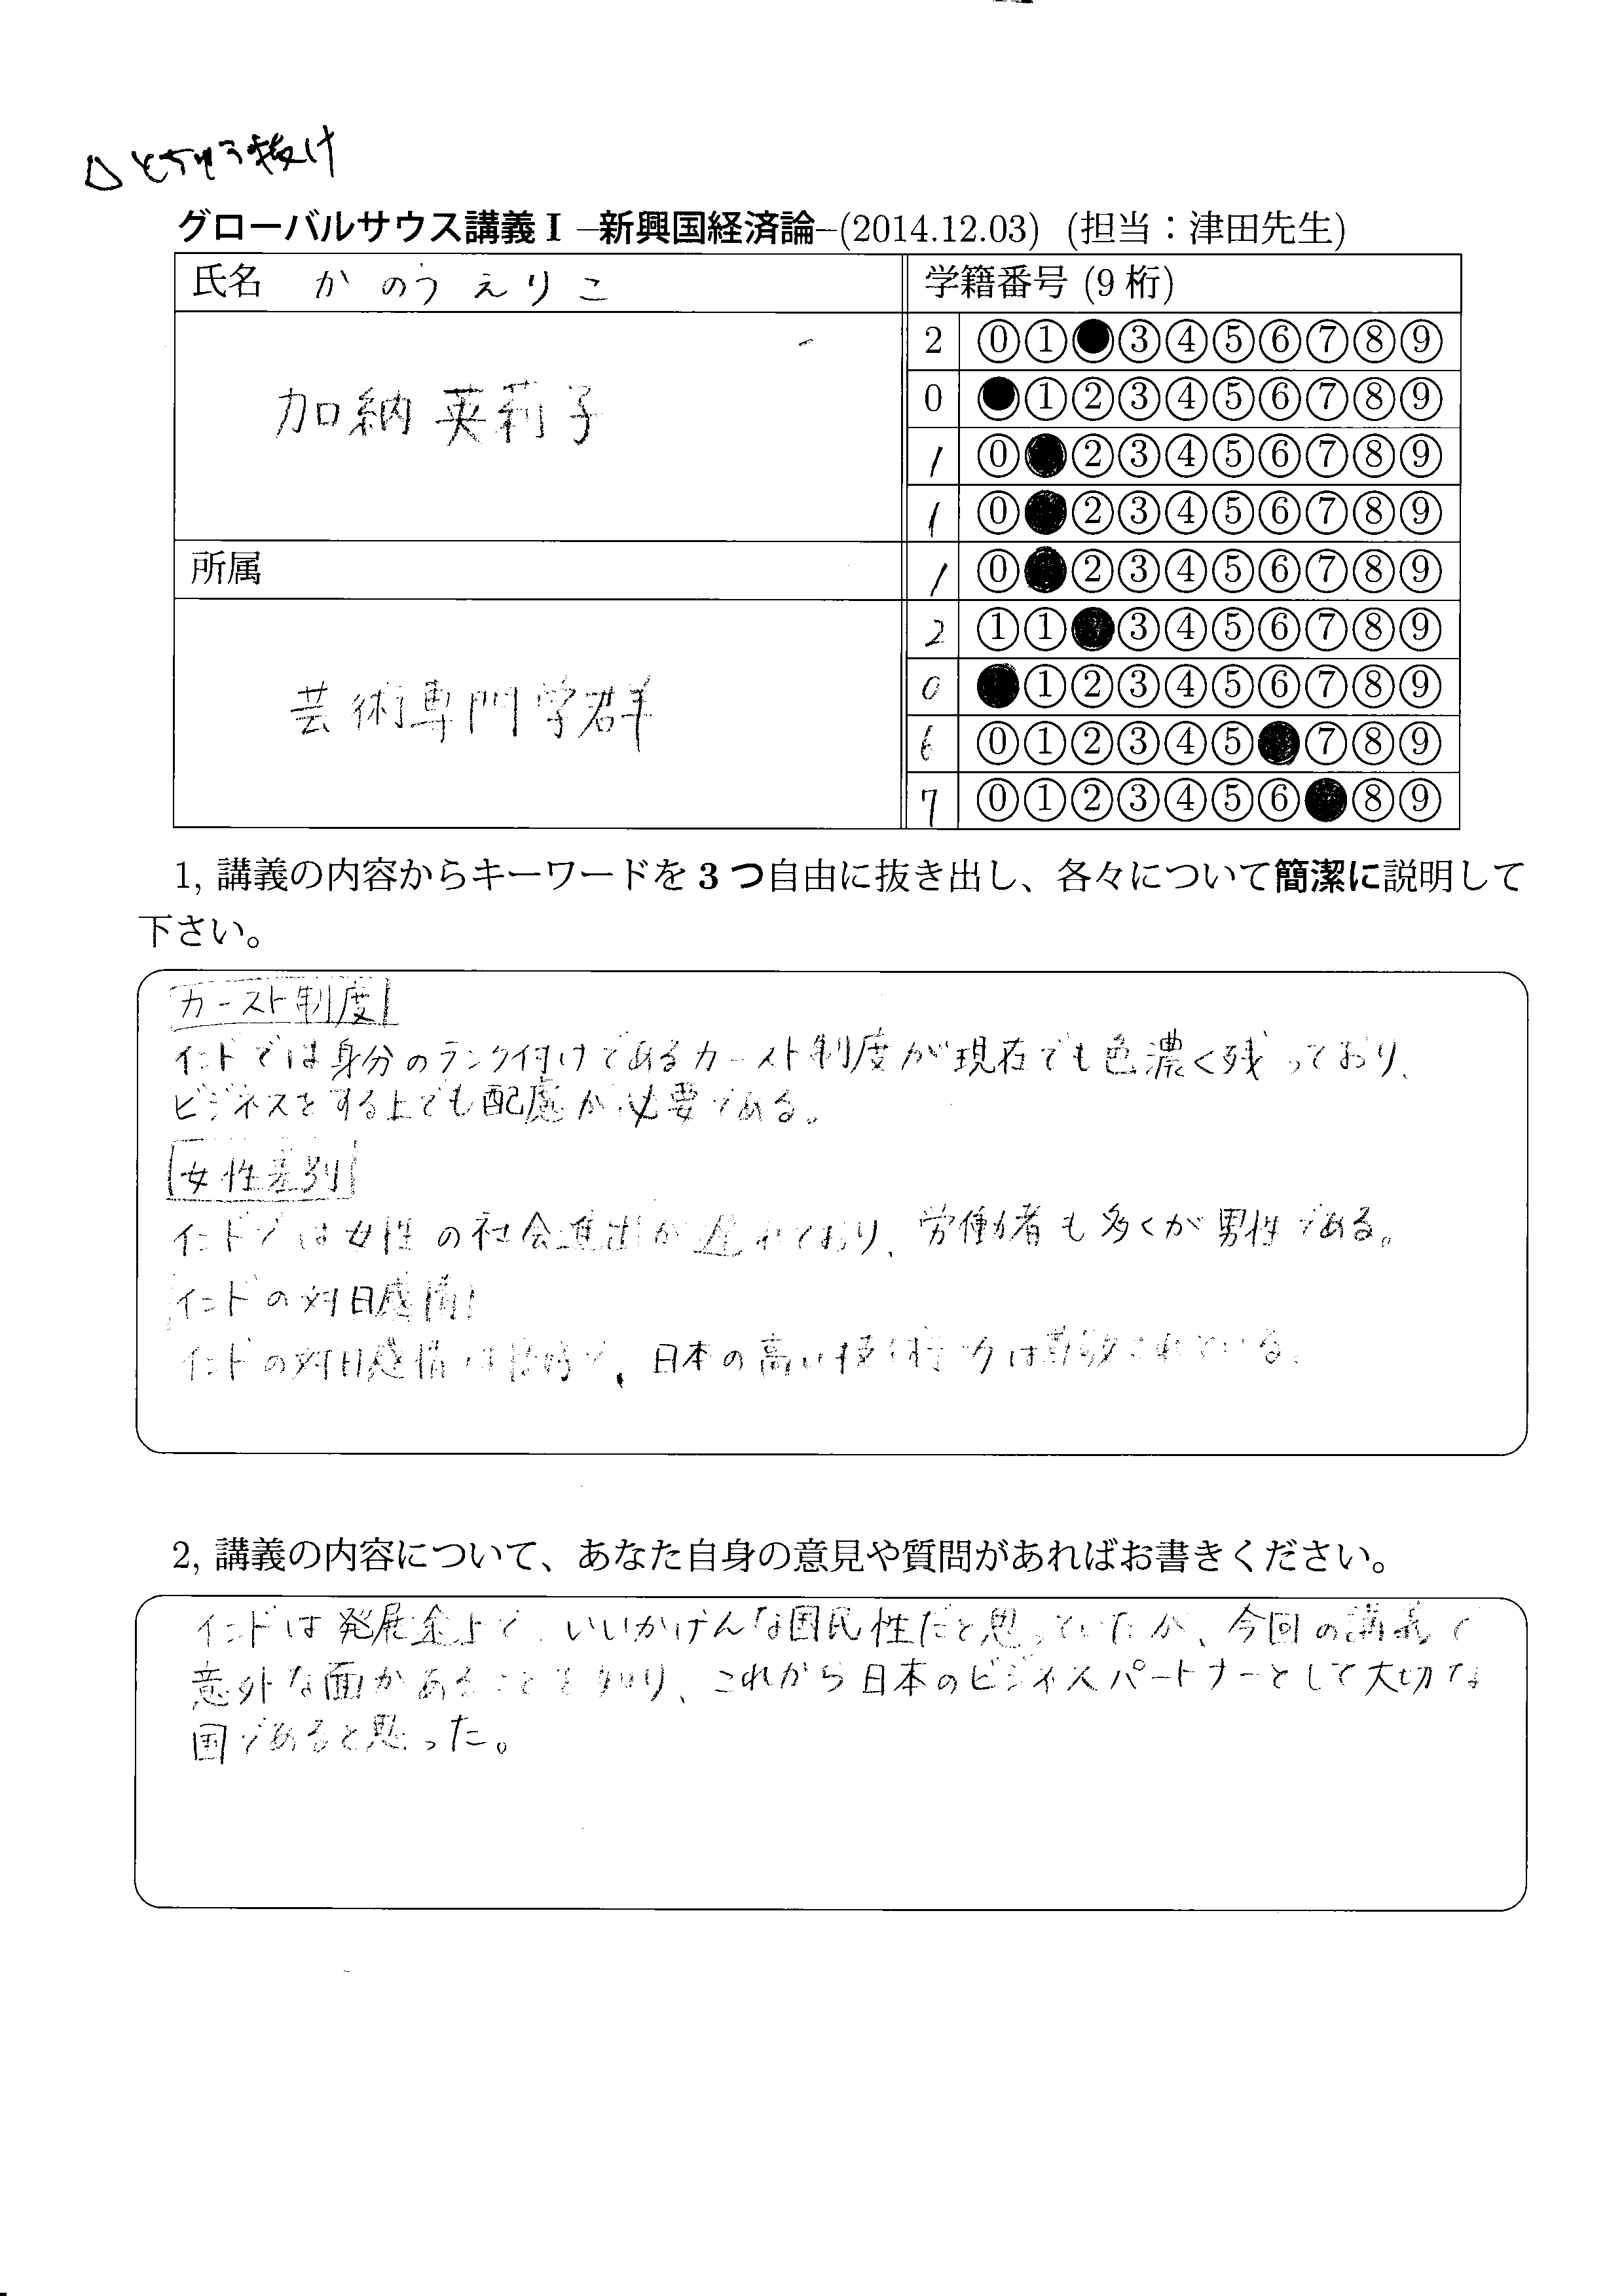 △とちゅう抜け
グローバルサウス講義 I –新興国経済論–(2014.12.03) (担当：津田先生)
氏名 かのう えりこ
学籍番号 (9 桁)
加納 英莉子
2 ⓪①●③④⑤⑥⑦⑧⑨
0 ●①②③④⑤⑥⑦⑧⑨
1 ⓪●②③④⑤⑥⑦⑧⑨
1 ⓪●②③④⑤⑥⑦⑧⑨
所属
1 ⓪●②③④⑤⑥⑦⑧⑨
2 ①①●③④⑤⑥⑦⑧⑨
芸術専門学群
0 ●①②③④⑤⑥⑦⑧⑨
6 ⓪①②③④⑤●⑦⑧⑨
7 ⓪①②③④⑤⑥●⑧⑨
1, 講義の内容からキーワードを 3 つ自由に抜き出し、各々について簡潔に説明して
下さい。
カースト制度
インドでは身分のランク付けであるカースト制度が現在でも色濃く残っており、
ビジネスをする上でも配慮が必要である。
女性差別
インドでは女性の社会進出が遅れており、労働者も多くが男性である。
インドの対日感情
インドの対日感情は、日本の高い技術力は尊敬されている。
2, 講義の内容について、あなた自身の意見や質問があればお書きください。
インドは発展途上で、いいかげんな国民性だと思っていたが、今回の講義で
意外な面があることを知り、これから日本のビジネスパートナーとして大切な
国であると思った。